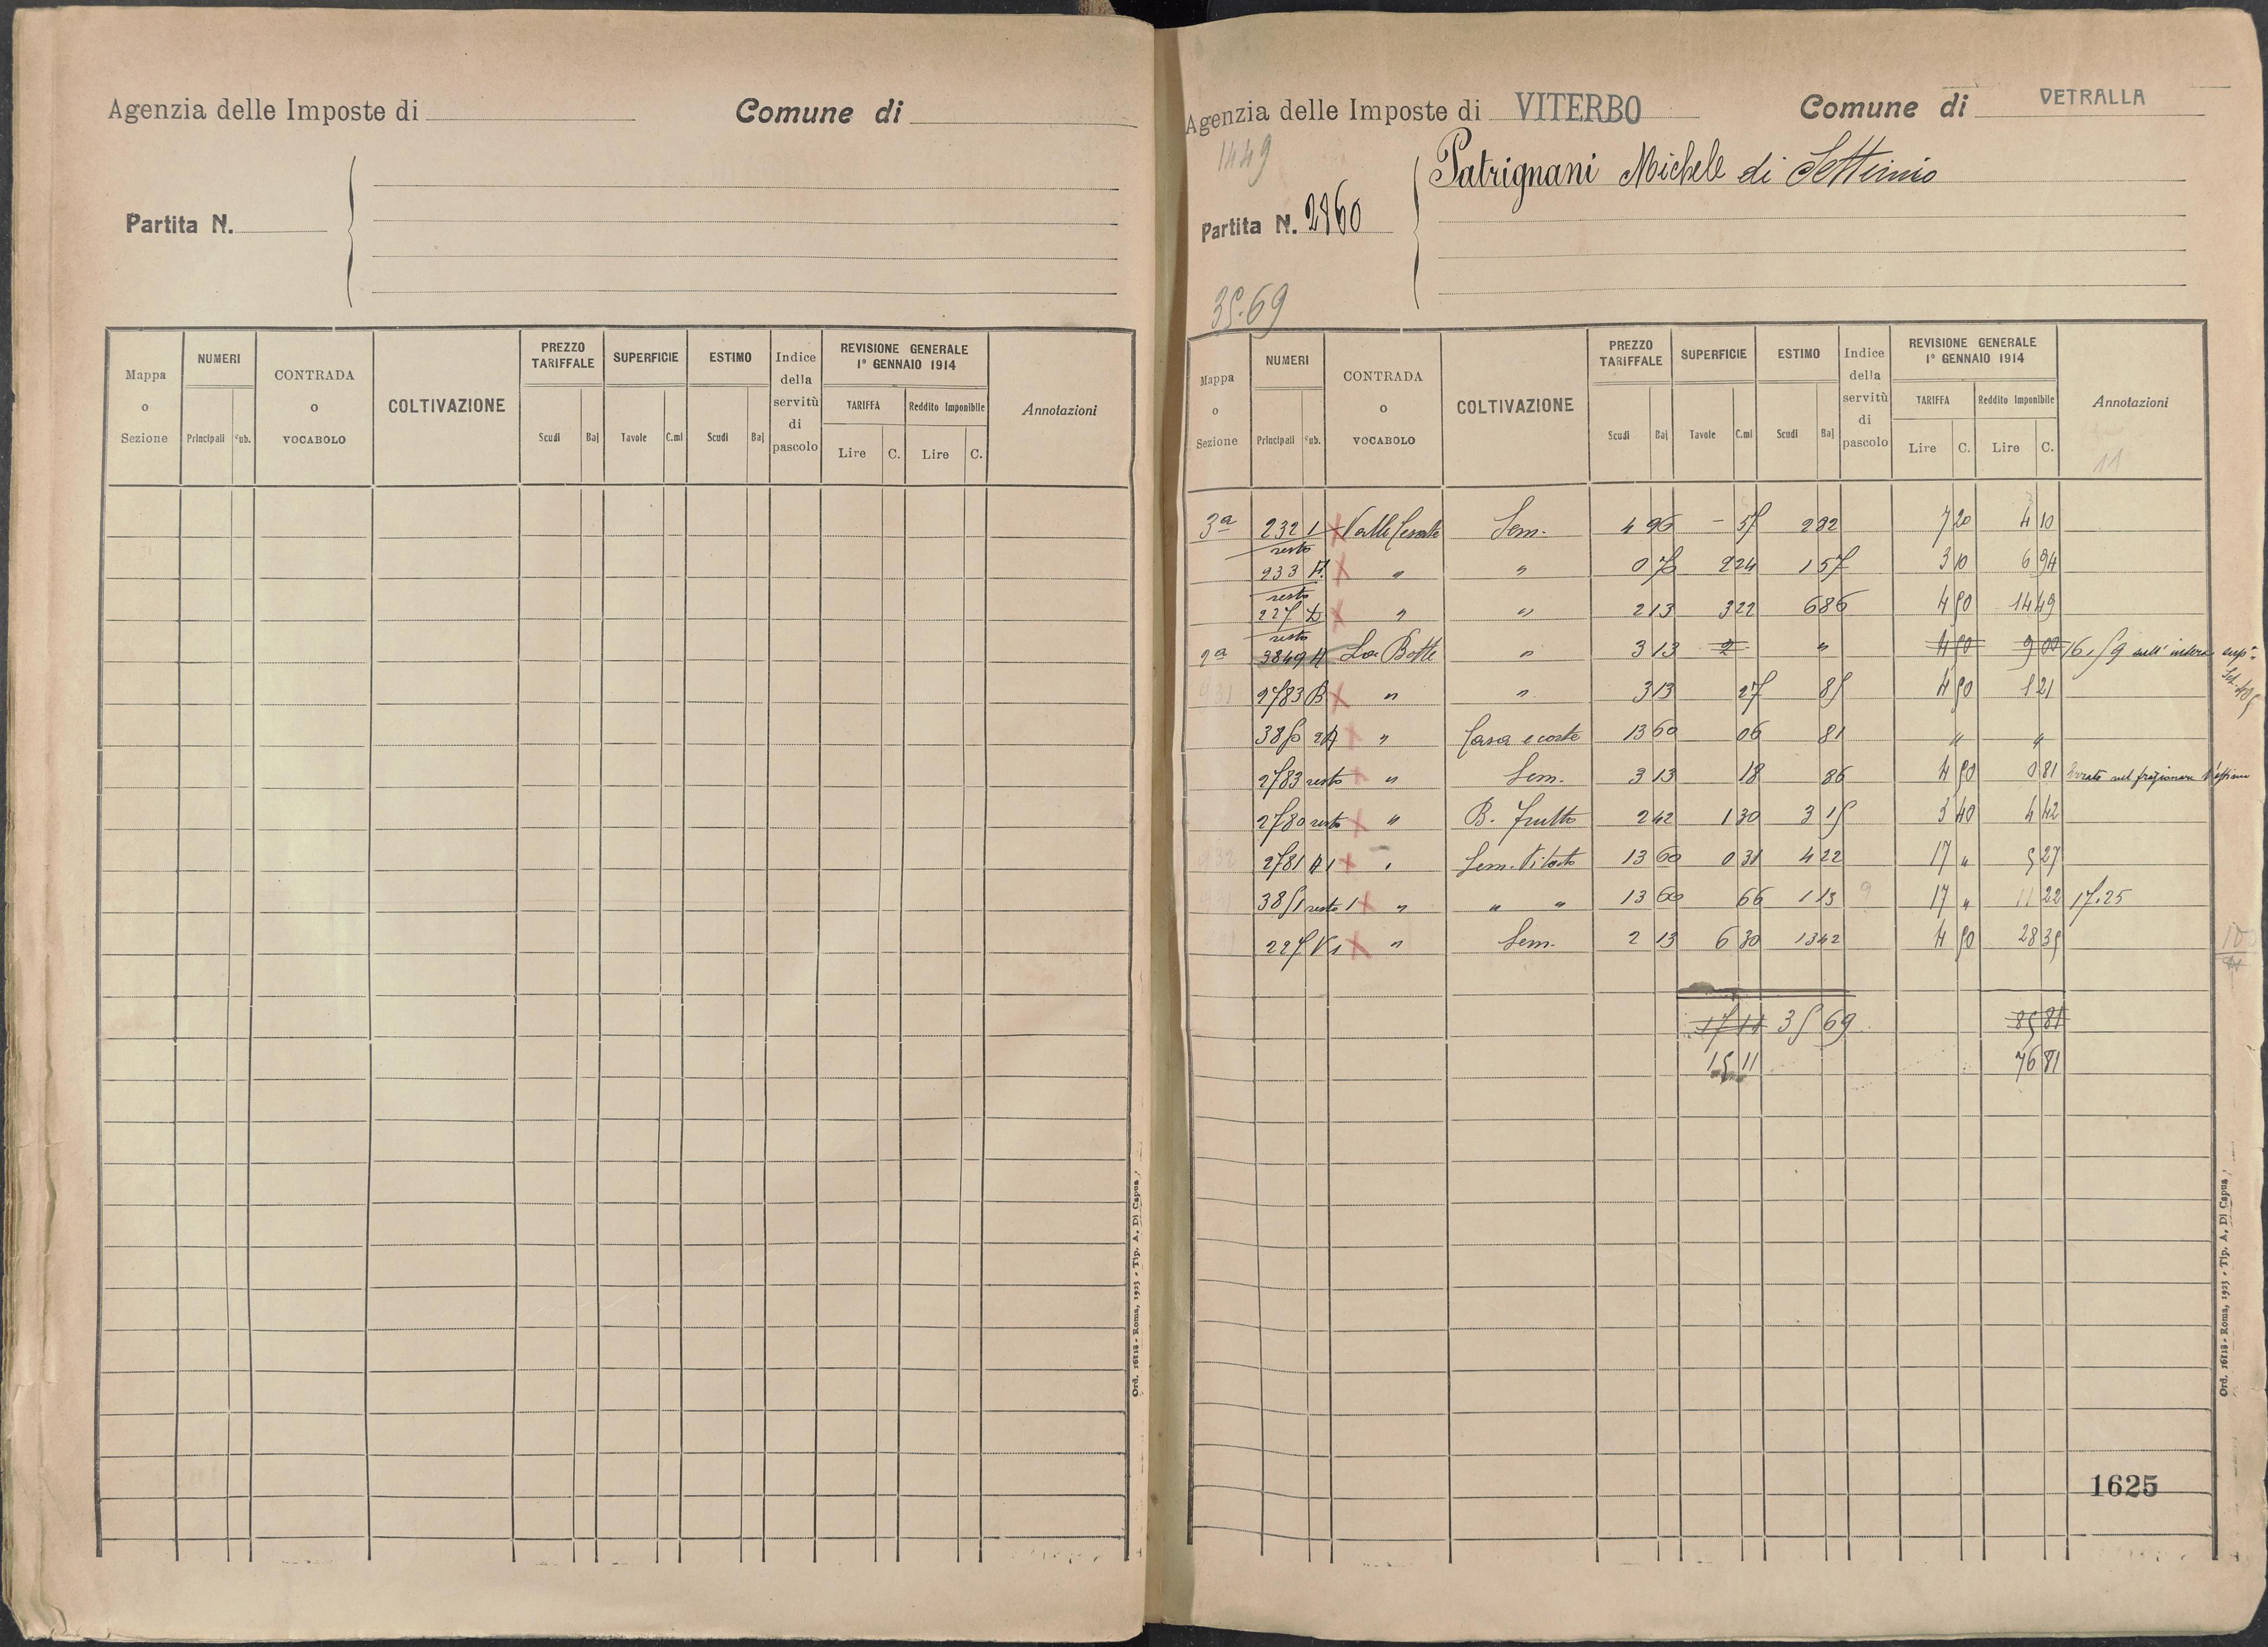 Agenzia delle Imposte di
Comune di
Partita N.
Mappa o Sezione
NUMERI
Principali
Sub.
CONTRADA o VOCABOLO
COLTIVAZIONE
PREZZO TARIFFALE
Scudi
Baj
SUPERFICIE
Tavole
C.mi
ESTIMO
Scudi
Baj
Indice della servitù di pascolo
REVISIONE GENERALE 1° GENNAIO 1914
TARIFFA
Reddito Imponibile
Lire
C.
Lire
C.
Annotazioni
Ord. 16118 - Roma, 1923 - Tip. A. Di Capua
Agenzia delle Imposte di VITERBO
Comune di VETRALLA
1449
Patrignani Michele di Settimio
Partita N. 2860
35.69
Mappa o Sezione
NUMERI
Principali
Sub.
CONTRADA o VOCABOLO
COLTIVAZIONE
PREZZO TARIFFALE
Scudi
Baj
SUPERFICIE
Tavole
C.mi
ESTIMO
Scudi
Baj
Indice della servitù di pascolo
REVISIONE GENERALE 1° GENNAIO 1914
TARIFFA
Reddito Imponibile
Lire
C.
Lire
C.
Annotazioni
11
3a 232 1 Sem. 4 96 - 57 2 82 7 20 4 10
resto
233 " " 0 70 2 24 1 57 3 10 6 94
resto
227 D " " 2 13 3 22 6 86 4 50 14 49
resto
2a 3849 A La Botte " 3 13 2 " 4 50 9 00
2783 B " " 3 13 27 85 4 50 1 21
385 " Casa e corte 13 60 06 81 " "
2783 resto " Sem. 3 13 18 86 4 50 0 81
2780 resto " B. frutto 2 42 1 30 3 15 3 40 4 42
2781 A1 " Sem. Vitato 13 60 0 31 4 22 17 " 5 27
385 1 resto 1 " " " 13 60 66 1 13 9 17 " 11 22 17.25
227 V1 " Sem. 2 13 6 30 13 42 4 50 28 35
17 11 35 69 85 81
15 11 76 81
1625
Ord. 16118 - Roma, 1923 - Tip. A. Di Capua